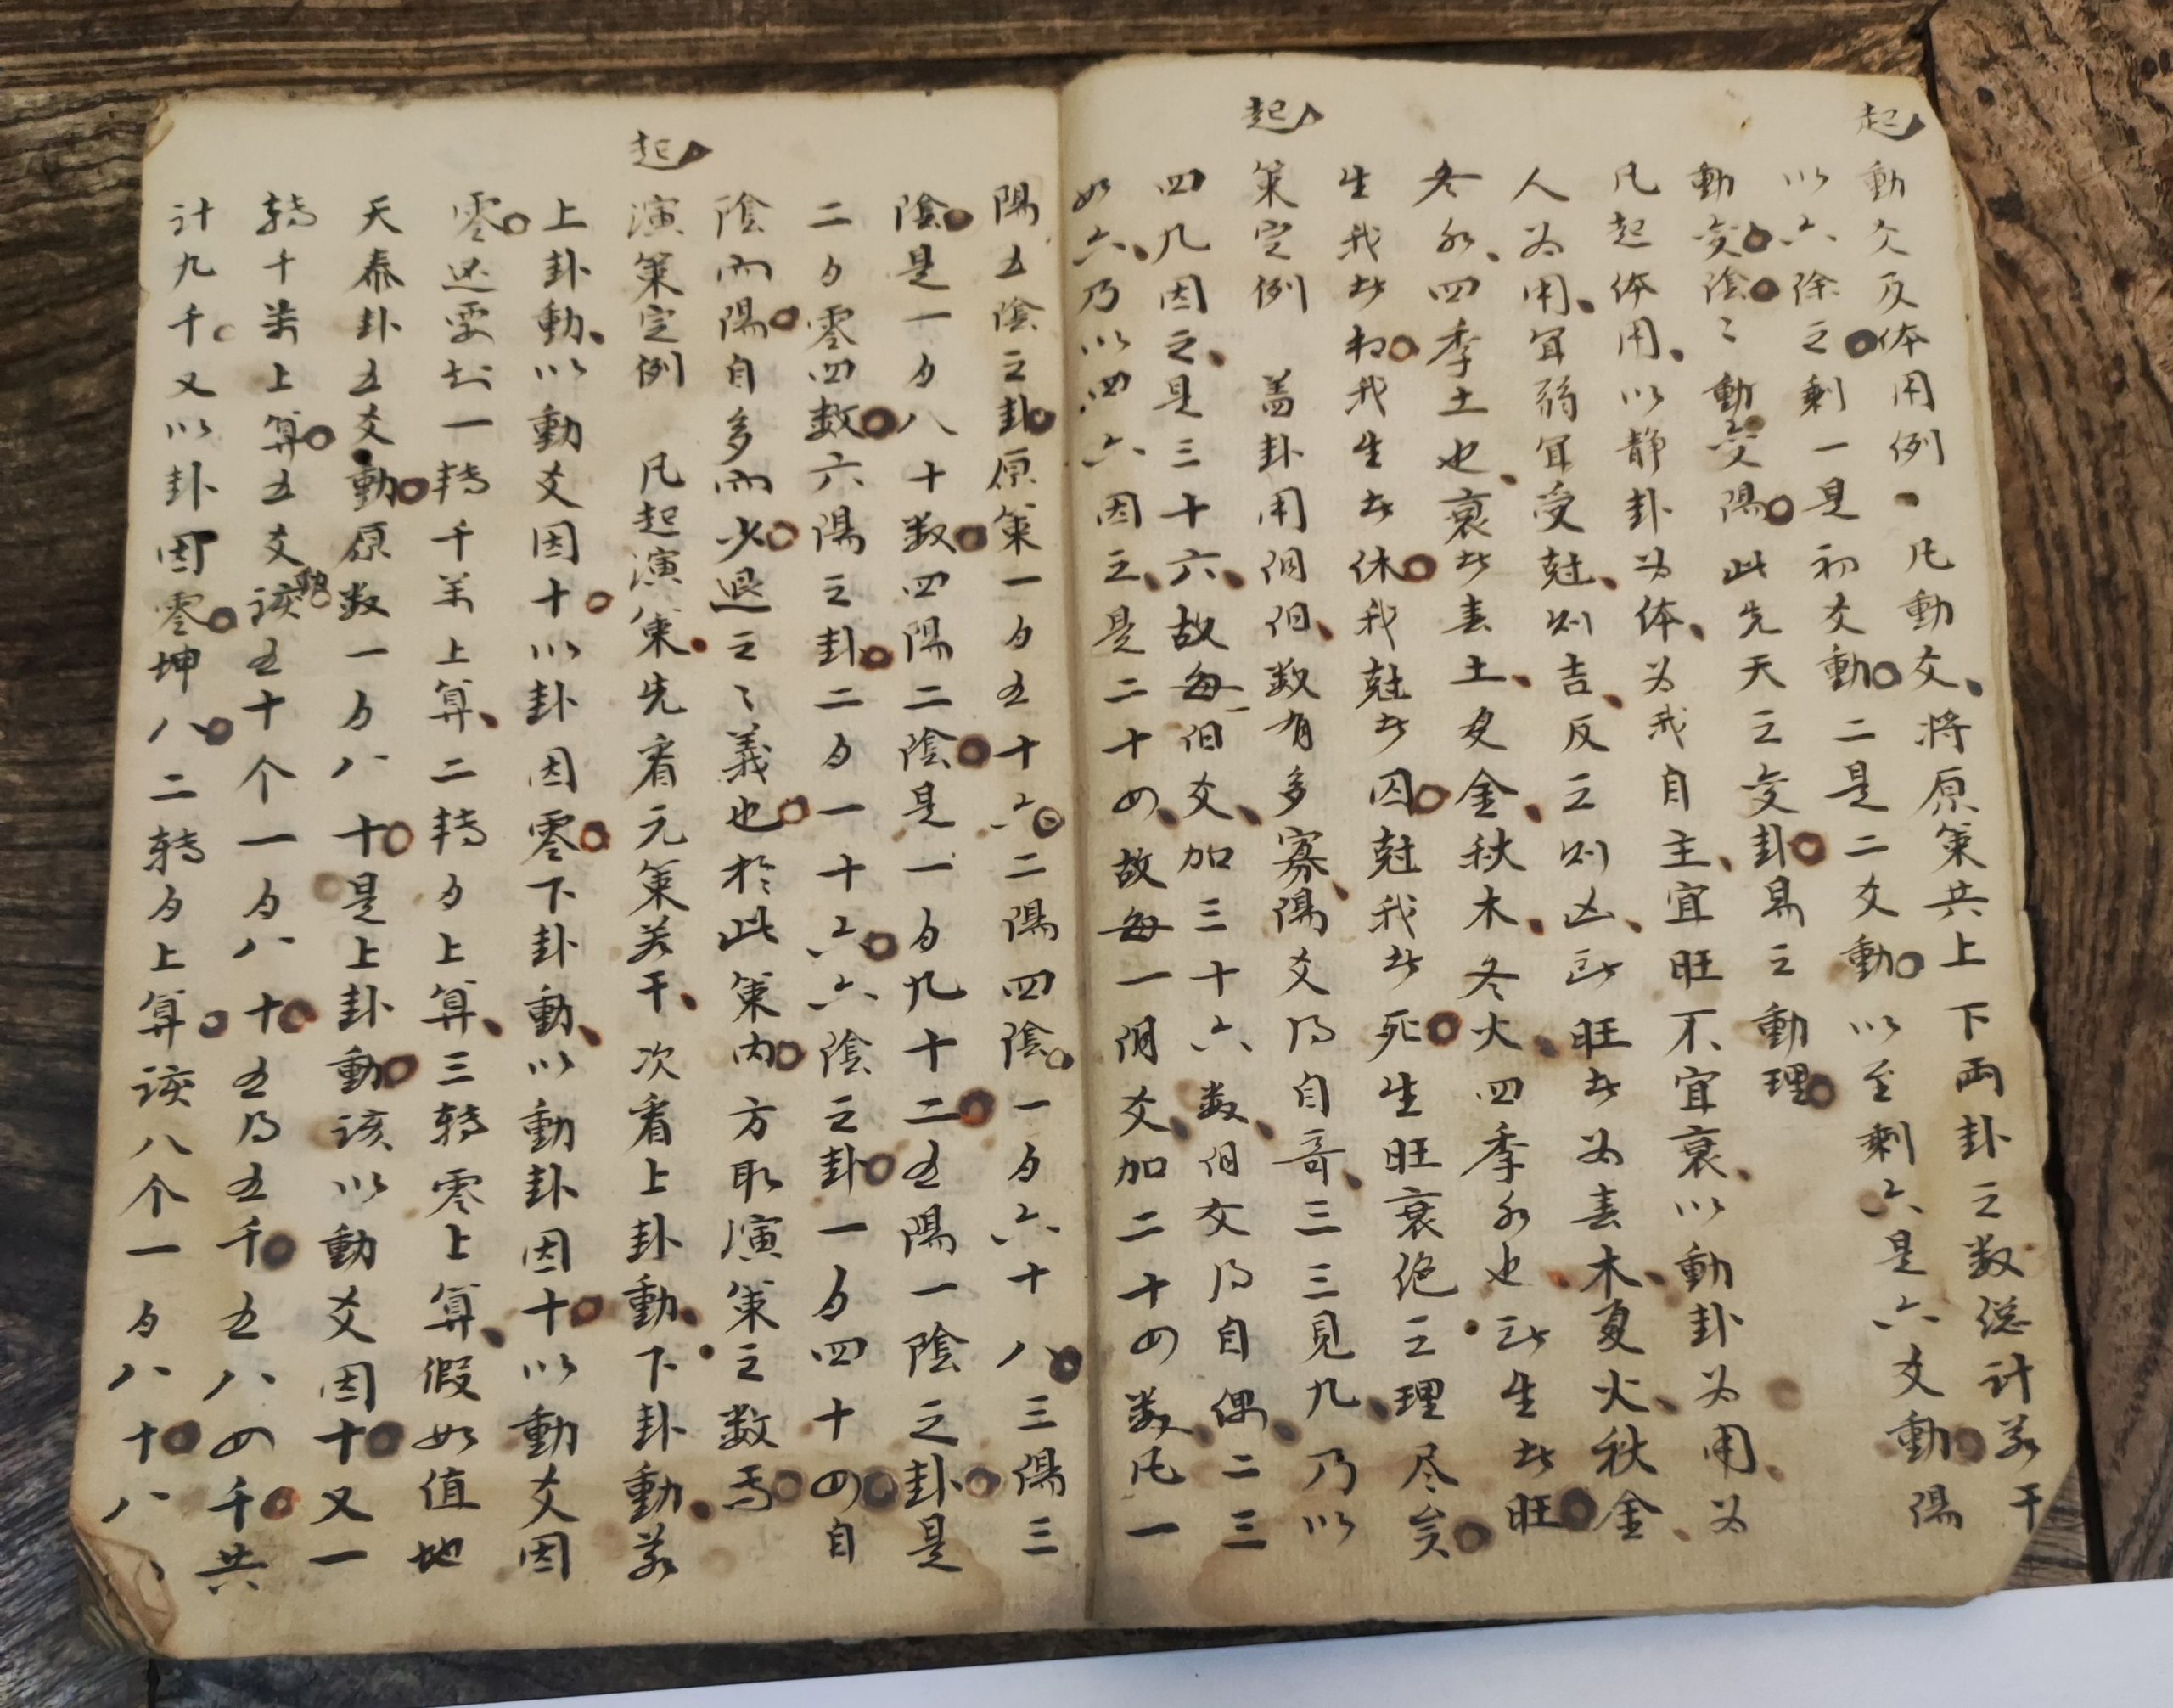 起動爻及体用例 凡動爻将原策共上下両卦之数総計若干
以六除之剰一是初爻動二是二爻動以至剰六是六爻動陽
動变陰陰〻動变陽此先天之变卦易之動理
凡起体用以静卦为体为我自主宜旺不宜衰以動卦为用为
人为用宜弱宜受尅则吉反之则凶 旺者为春木夏火秋金
冬水四季土也衰者春土夏金秋木冬火四季水也 生者旺
生我者相我生者休我尅者囚尅我者死生旺衰绝之理尽矣
起策定例 盖卦用阴阳数有多寡陽爻乃自奇三三見九乃以
四九因之是三十六故每阳爻加三十六数阴爻乃自偶二三
如六乃以四六因之是二十四故每一阴爻加二十四数凡一
陽五陰之卦原策一百五十六二陽四陰一百六十八三陽三
陰是一百八十数四陽二陰是一百九十二五陽一陰之卦是
二百零四数六陽之卦二百一十六六陰之卦一百四十四自
陰而陽自多而少退之〻義也於此策内方取演策之数焉
起演策定例 凡起演策先看元策若干次看上卦動下卦動若
上卦動以動爻因十以卦因零下卦動以動卦因十以動爻因
零还要加一转千 上算二转百上算三转零上算假如值地
天泰卦五爻動原数一百八十是上卦動該以動爻因十又一
转千 上算五爻動該五十个一百八十五乃五千五八四千共
计九千又以卦因零坤八二转百上算該八个一百八十八